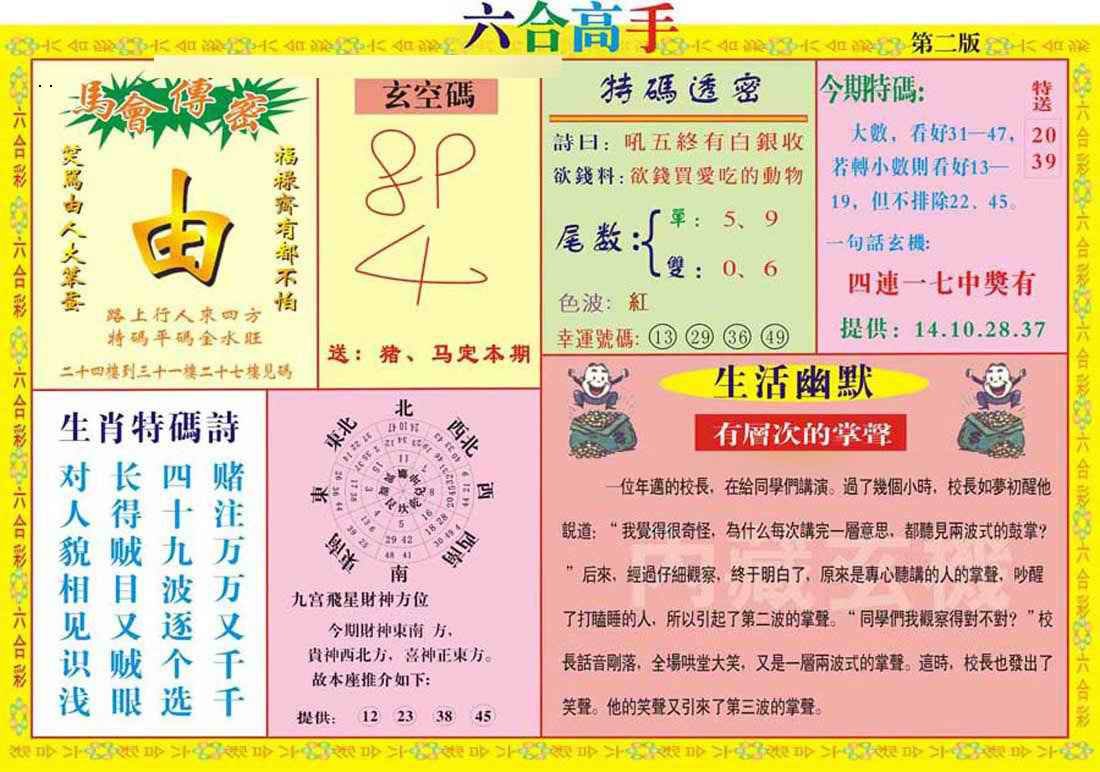 六合高手
第二版
馬會傳密
笑罵由人大笨蛋
由
福祿齊有都不怕
路上行人來四方
特碼平碼金水旺
二十四樓到三十一樓二十七樓見碼
玄空碼
送：猪、马定本期
特碼透密
詩曰：吼五終有白銀收
欲錢料：欲錢買愛吃的動物
尾数：
單：5、9
雙：0、6
色波：紅
幸運號碼：13 29 36 49
今期特碼：
特送
20
39
大數，看好31—47，
若轉小數則看好13—
19，但不排除22、45。
一句話玄機：
四連一七中獎有
提供：14.10.28.37
生肖特碼詩
赌注万万又千千
四十九波逐个选
长得贼目又贼眼
对人貌相见识浅
北
西北
西
西南
南
東南
東
東北
九宫飛星財神方位
今期財神東南 方，
貴神西北方，喜神正東方。
故本座推介如下：
提供：12 23 38 45
生活幽默
有層次的掌聲
一位年邁的校長，在給同學們講演。過了幾個小時，校長如夢初醒他
說道：“我覺得很奇怪，為什么每次講完一層意思，都聽見兩波式的鼓掌？
”后來，經過仔細觀察，终于明白了，原來是專心聽講的人的掌聲，吵醒
了打瞌睡的人，所以引起了第二波的掌聲。“同學們我觀察得對不對？”校
長話音剛落，全場哄堂大笑，又是一層兩波式的掌聲。這時，校長也發出了
笑聲。他的笑聲又引來了第三波的掌聲。
内藏玄機
六合彩